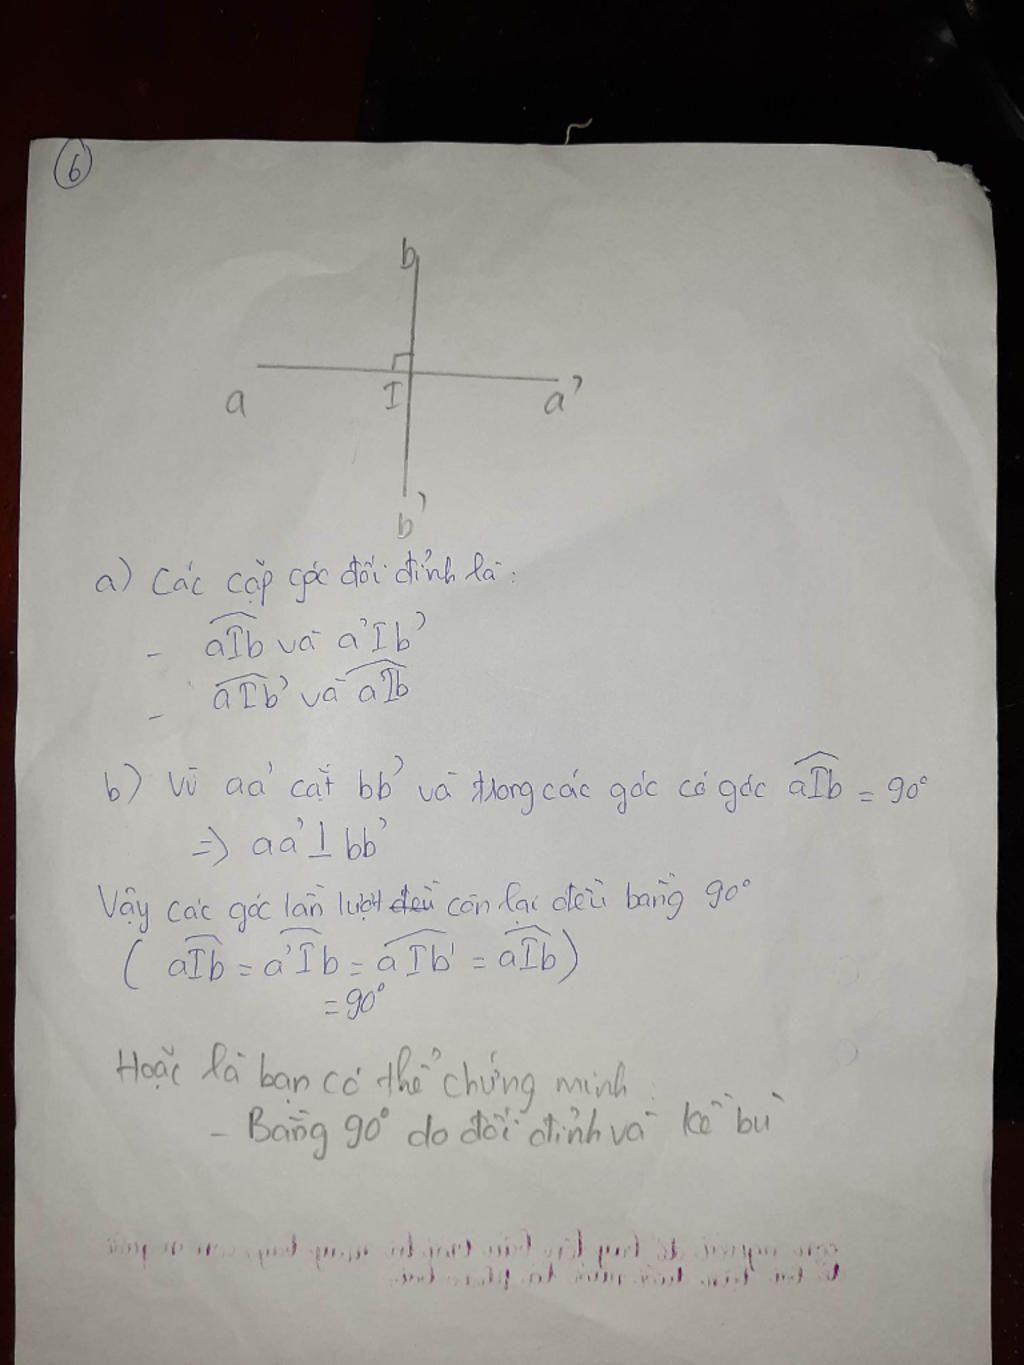 6
b
a I a'
b'
a) Các cặp góc đối đỉnh là:
- aIb và a'Ib'
- aIb' và a'Ib
b) Vì aa' cắt bb' và trong các góc có góc aIb = 90°
=> aa' ⊥ bb'
Vậy các góc lần lượt đều còn lại đều bằng 90°
( aIb = a'Ib = aIb' = aIb )
= 90°
Hoặc là bạn có thể chứng minh
- Bằng 90° do đối đỉnh và kề bù